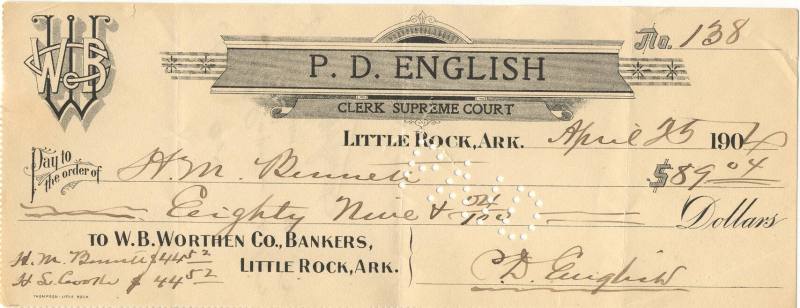 WBWCo
No. 138
P. D. ENGLISH
CLERK SUPREME COURT
LITTLE ROCK, ARK. April 25 1904
Pay to the order of H. M. Bennett $89.04
Eighty Nine & 04/100 Dollars
TO W.B. WORTHEN CO., BANKERS,
LITTLE ROCK, ARK.
H. M. Bennett $ 44 52
H S $ 44 52
P.D. English
THOMPSON-LITTLE ROCK
PAID